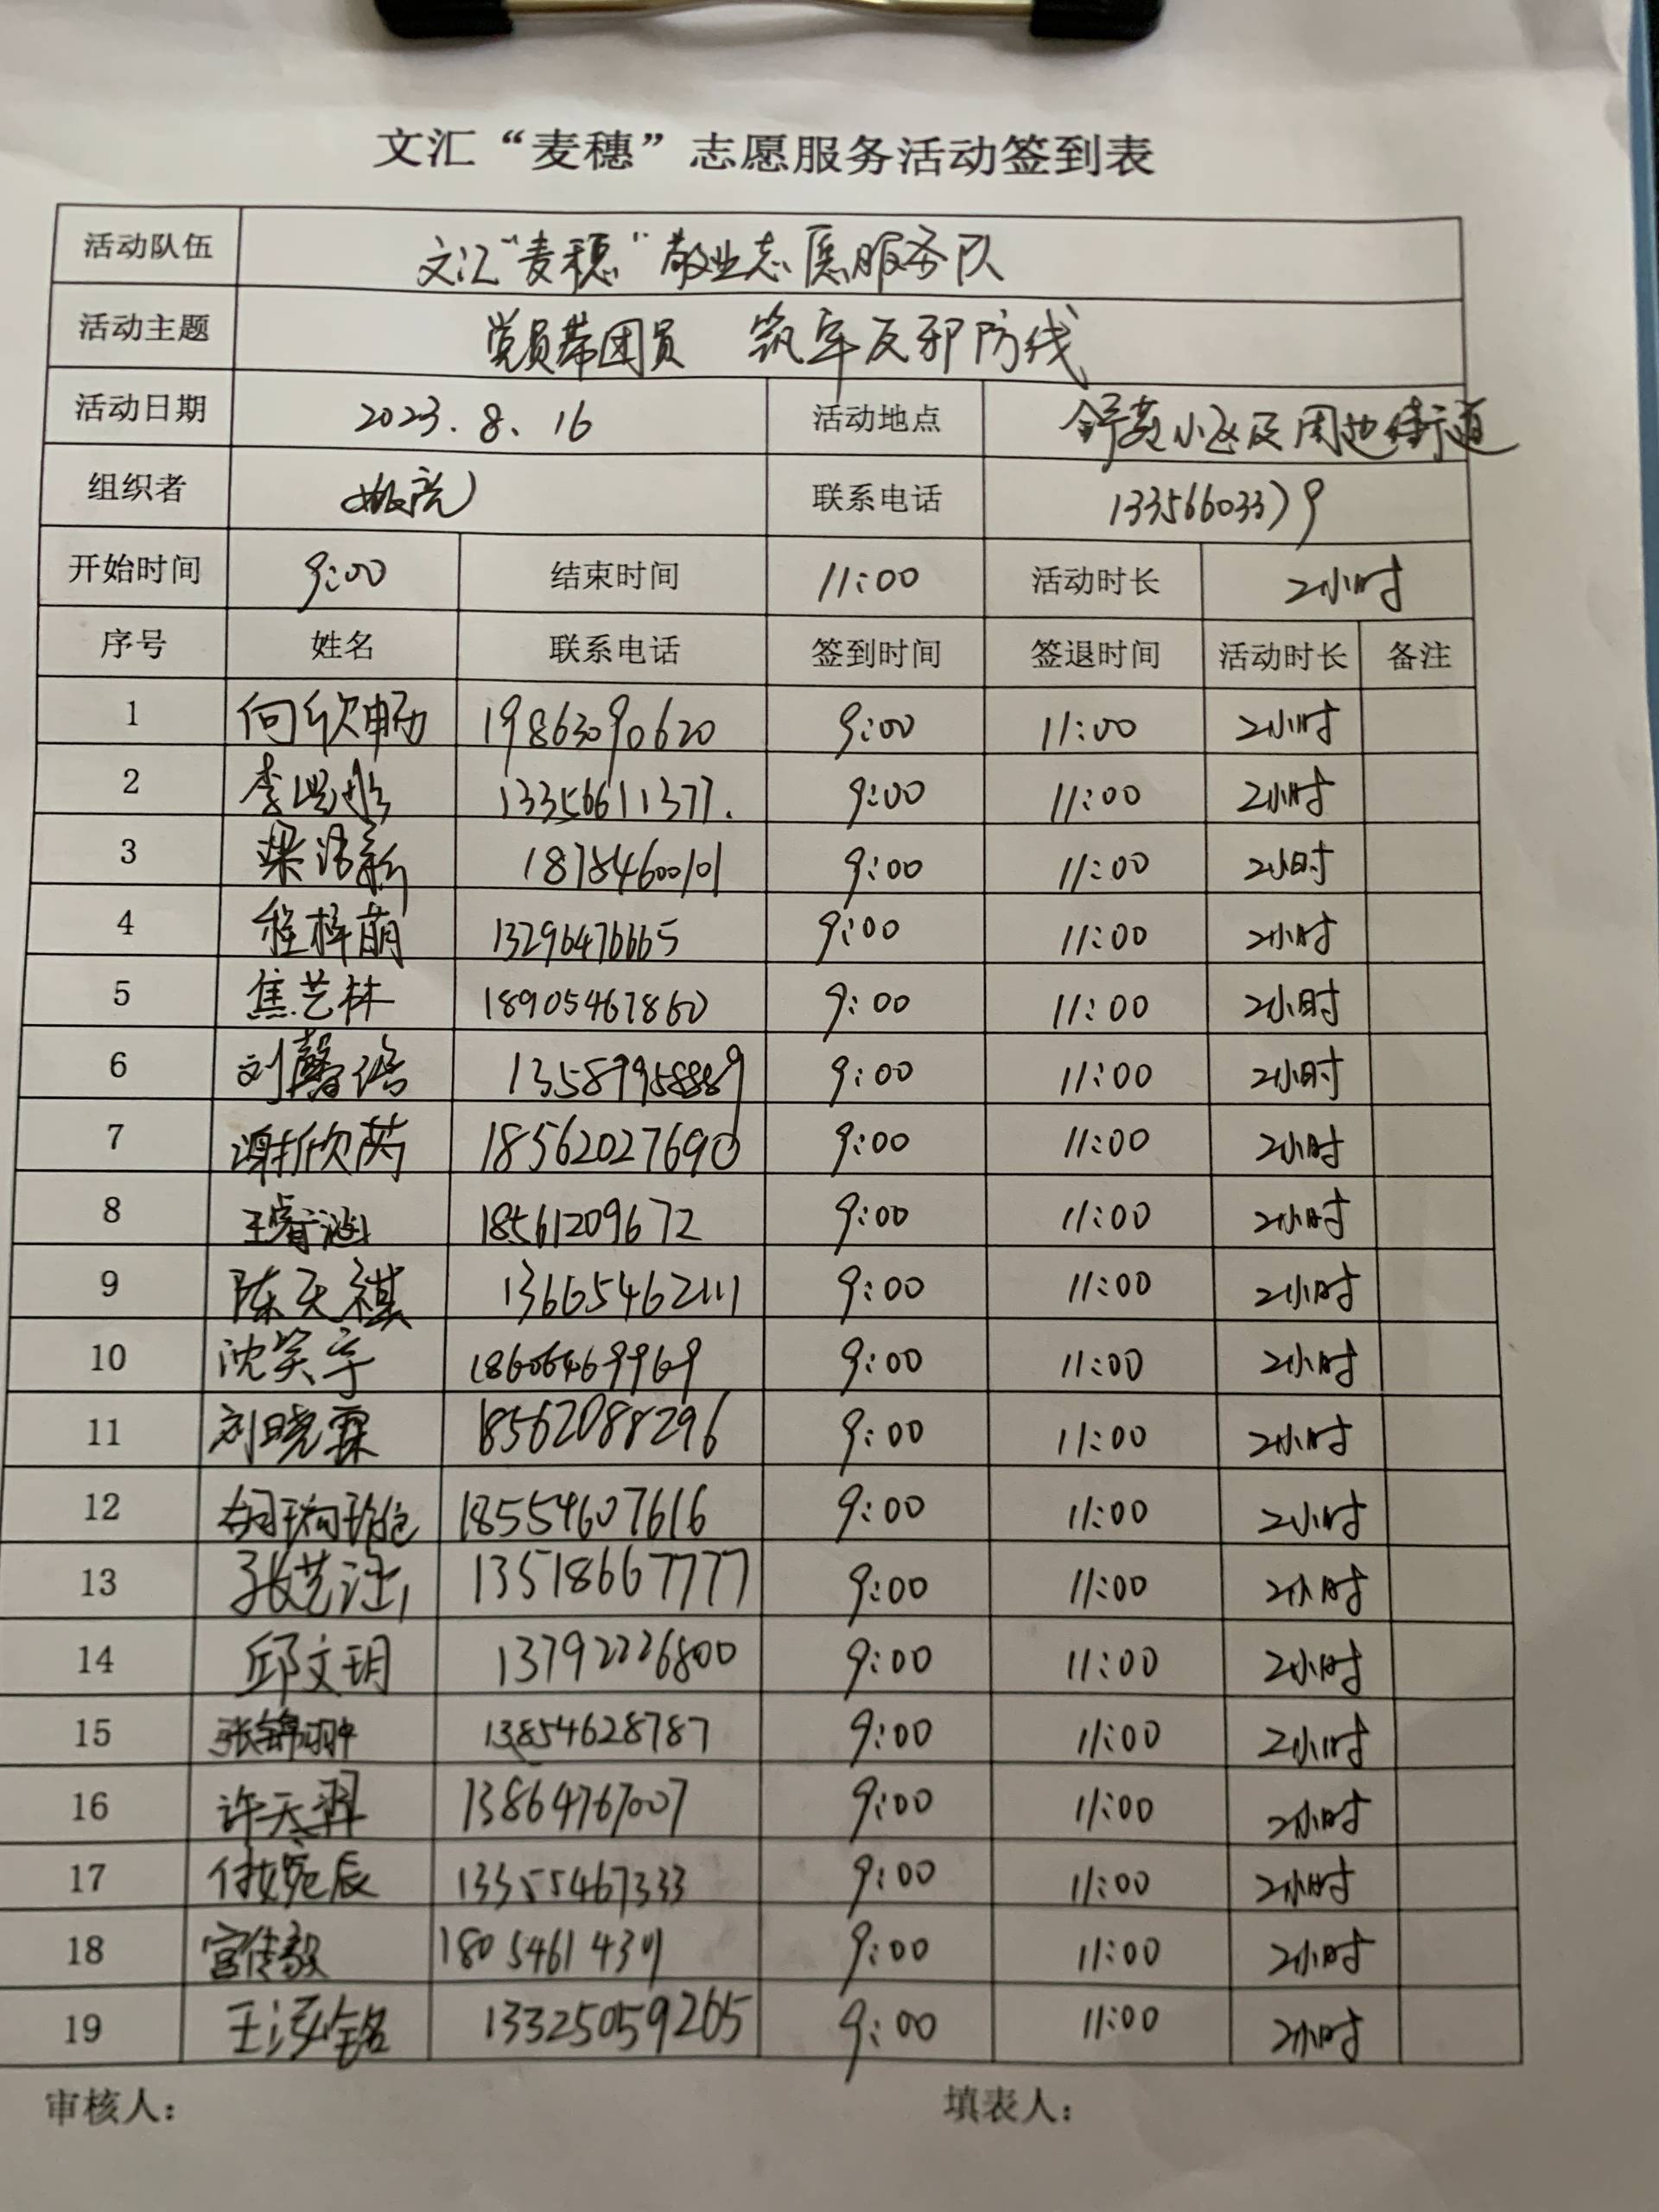 文汇“麦穗”志愿服务活动签到表
活动队伍 文汇“麦穗”敬业志愿服务队
活动主题 党员带团员 筑牢反邪防线
活动日期 2023.8.16 活动地点 舒苑小区及周边街道
组织者 联系电话 13356603379
开始时间 9:00 结束时间 11:00 活动时长 2小时
序号 姓名 联系电话 签到时间 签退时间 活动时长 备注
1 何欣畅 19863090620 9:00 11:00 2小时
2 13356611377. 9:00 11:00 2小时
3 18784600101 9:00 11:00 2小时
4 程梓萌 13296476665 9:00 11:00 2小时
5 焦艺林 18905467860 9:00 11:00 2小时
6 刘馨 13589958889 9:00 11:00 2小时
7 谢欣芮 18562027690 9:00 11:00 2小时
8 王睿涵 18561209672 9:00 11:00 2小时
9 陈天祺 13665462111 9:00 11:00 2小时
10 沈笑宇 18606469969 9:00 11:00 2小时
11 刘晓霖 18562088296 9:00 11:00 2小时
12 18554607616 9:00 11:00 2小时
13 13518667777 9:00 11:00 2小时
14 邱文玥 13792226800 9:00 11:00 2小时
15 张锦翀 13854628787 9:00 11:00 2小时
16 许天羿 13864767007 9:00 11:00 2小时
17 付婉辰 13355467333 9:00 11:00 2小时
18 宫传毅 9:00 11:00 2小时
19 王泓铭 13325059265 9:00 11:00 2小时
审核人： 填表人：